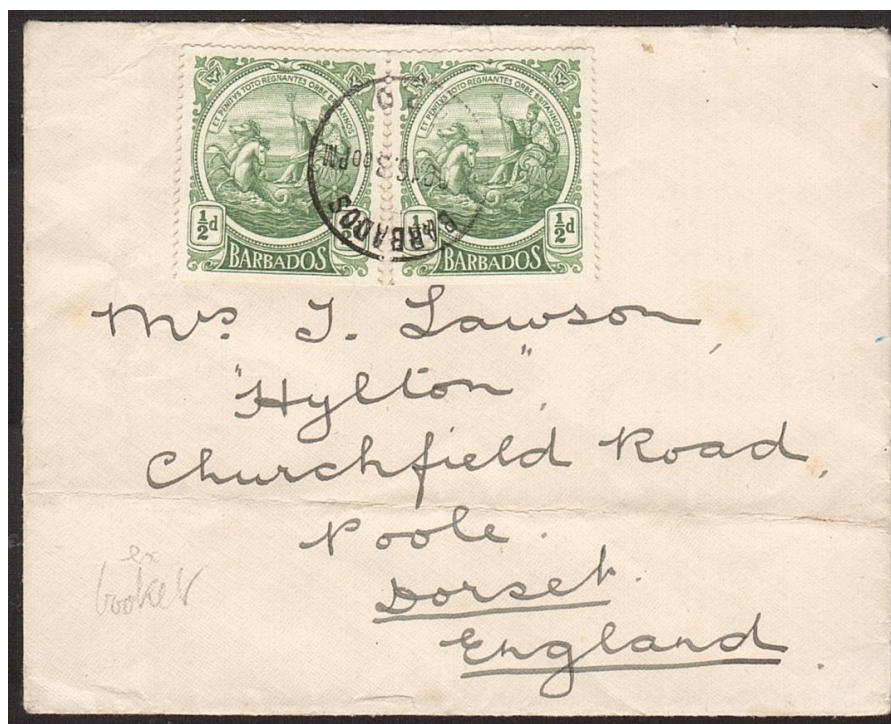 ET PENITVS TOTO REGNANTES ORBE BRITANNOS
½d
BARBADOS
ET PENITVS TOTO REGNANTES ORBE BRITANNOS
½d ½d
BARBADOS
BARBADOS
Mrs. J. Lawson,
"Hylton",
Churchfield Road,
Poole.
Dorset.
England.
ex
booklet